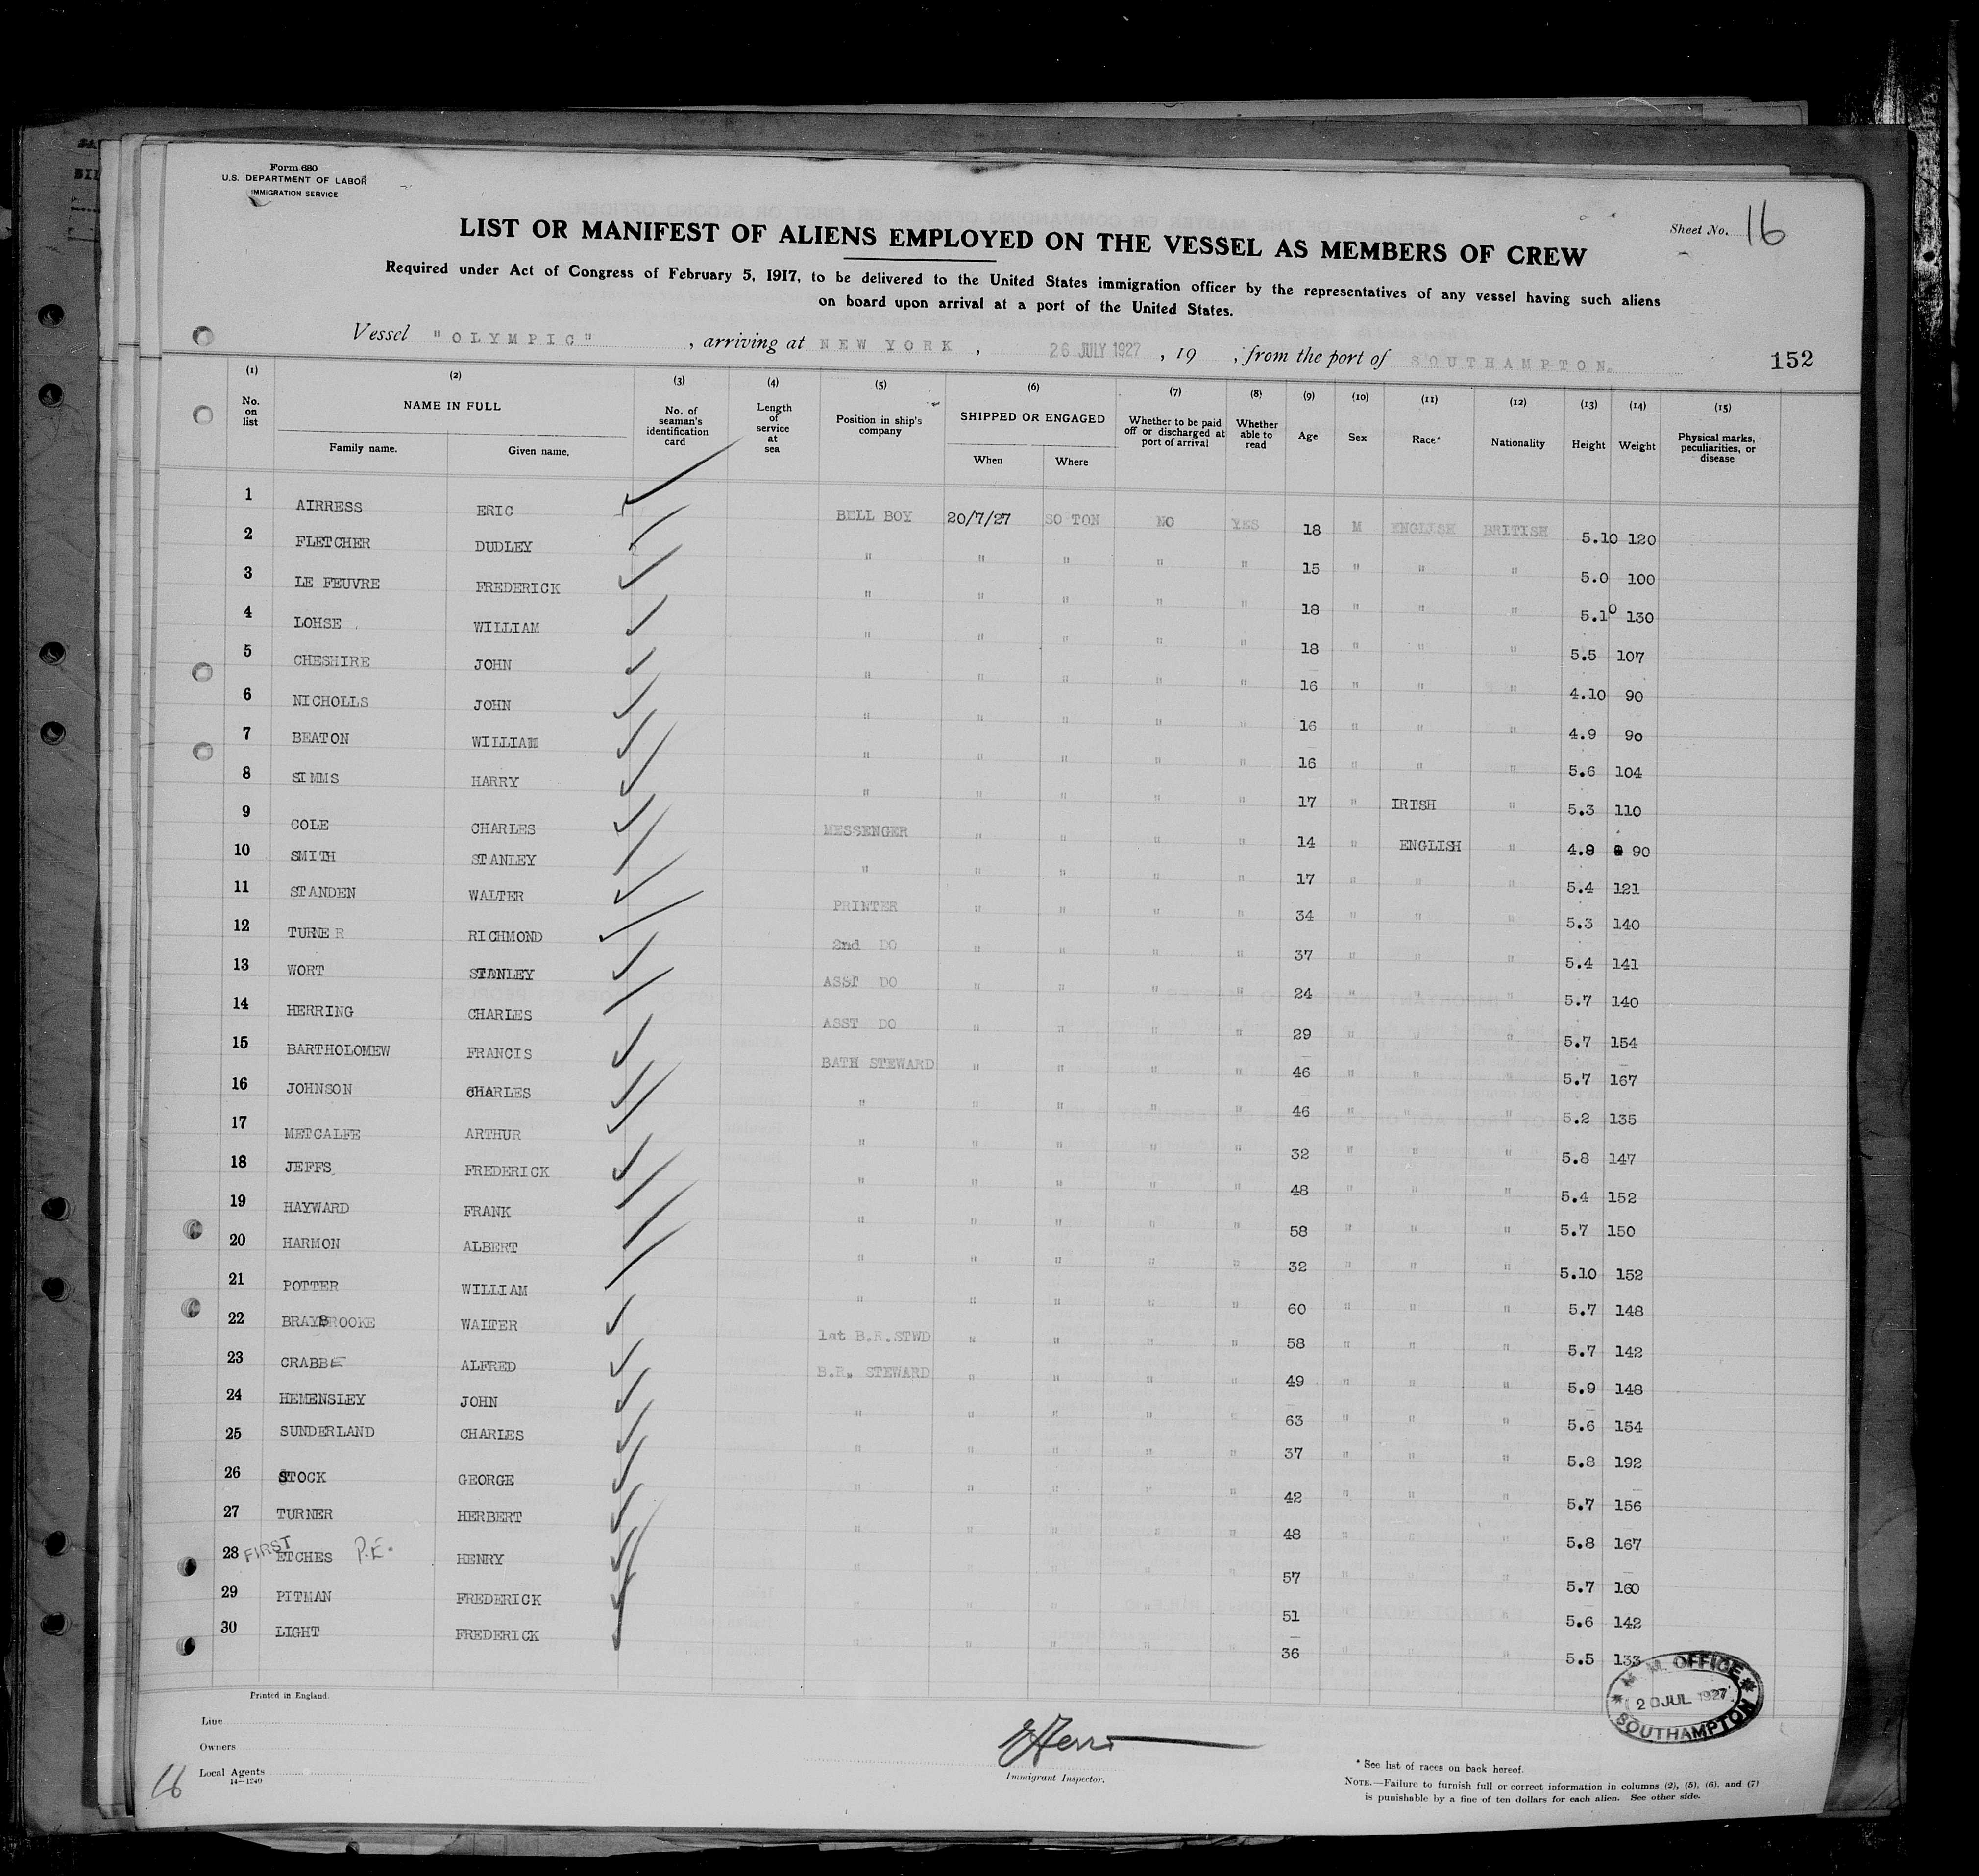 Form 680
U.S. DEPARTMENT OF LABOR
IMMIGRATION SERVICE
Sheet No. 16
LIST OR MANIFEST OF ALIENS EMPLOYED ON THE VESSEL AS MEMBERS OF CREW
Required under Act of Congress of February 5, 1917, to be delivered to the United States immigration officer by the representatives of any vessel having such aliens
on board upon arrival at a port of the United States.
Vessel "OLYMPIC", arriving at NEW YORK, 26 JULY 1927, 19 , from the port of SOUTHAMPTON. 152
(1) (2) (3) (4) (5) (6) (7) (8) (9) (10) (11) (12) (13) (14) (15)
No. on list NAME IN FULL Family name. Given name. No. of seaman's identification card Length of service at sea Position in ship's company SHIPPED OR ENGAGED When Where Whether to be paid off or discharged at port of arrival Whether able to read Age Sex Race* Nationality Height Weight Physical marks, peculiarities, or disease
1 AIRRESS ERIC BELL BOY 20/7/27 SO TON NO YES 18 M ENGLISH BRITISH 5.10 120
2 FLETCHER DUDLEY " " " " " 15 " " " 5.0 100
3 LE FEUVRE FREDERICK " " " " " 18 " " " 5.10 130
4 LOHSE WILLIAM " " " " " 18 " " " 5.5 107
5 CHESHIRE JOHN " " " " " 16 " " " 4.10 90
6 NICHOLLS JOHN " " " " " 16 " " " 4.9 90
7 BEATON WILLIAM " " " " " 16 " " " 5.6 104
8 SIMMS HARRY " " " " " 17 " IRISH " 5.3 110
9 COLE CHARLES MESSENGER " " " " 14 " ENGLISH " 4.8 90
10 SMITH STANLEY " " " " " 17 " " " 5.4 121
11 STANDEN WALTER PRINTER " " " " 34 " " " 5.3 140
12 TURNER RICHMOND 2nd DO " " " " 37 " " " 5.4 141
13 WORT STANLEY ASST DO " " " " 24 " " " 5.7 140
14 HERRING CHARLES ASST DO " " " " 29 " " " 5.7 154
15 BARTHOLOMEW FRANCIS BATH STEWARD " " " " 46 " " " 5.7 167
16 JOHNSON CHARLES " " " " " 46 " " " 5.2 135
17 METCALFE ARTHUR " " " " " 32 " " " 5.8 147
18 JEFFS FREDERICK " " " " " 48 " " " 5.4 152
19 HAYWARD FRANK " " " " " 58 " " " 5.7 150
20 HARMON ALBERT " " " " " 32 " " " 5.10 152
21 POTTER WILLIAM " " " " " 60 " " " 5.7 148
22 BRAYBROOKE WALTER 1st B.R.STWD " " " " 58 " " " 5.7 142
23 CRABBE ALFRED B.R. STEWARD " " " " 49 " " " 5.9 148
24 HEMENSLEY JOHN " " " " " 63 " " " 5.6 154
25 SUNDERLAND CHARLES " " " " " 37 " " " 5.8 192
26 STOCK GEORGE " " " " " 42 " " " 5.7 156
27 TURNER HERBERT " " " " " 48 " " " 5.8 167
28 FIRST ETCHES P.E. HENRY " " " " " 57 " " " 5.7 160
29 PITMAN FREDERICK " " " " " 51 " " " 5.6 142
30 LIGHT FREDERICK " " " " " 36 " " " 5.5 133
M. M. OFFICE
20 JUL 1927
SOUTHAMPTON
Printed in England.
Line
Owners
Local Agents
14—1240
16
Immigrant Inspector.
* See list of races on back hereof.
NOTE.—Failure to furnish full or correct information in columns (2), (5), (6), and (7)
is punishable by a fine of ten dollars for each alien. See other side.